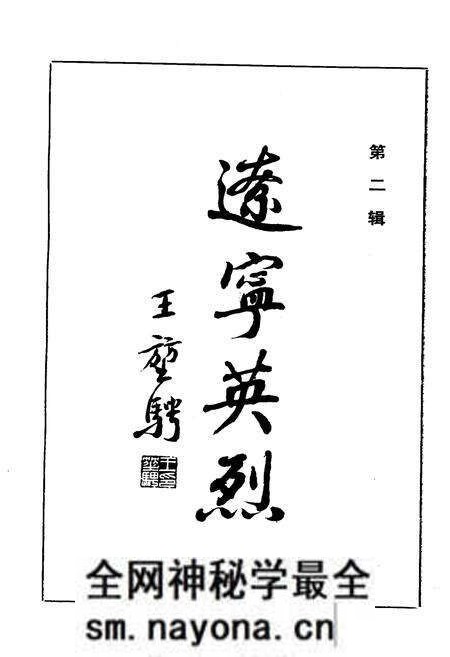 第二辑
遼寧英烈
王堃騁
全网神秘学最全
sm.nayona.cn